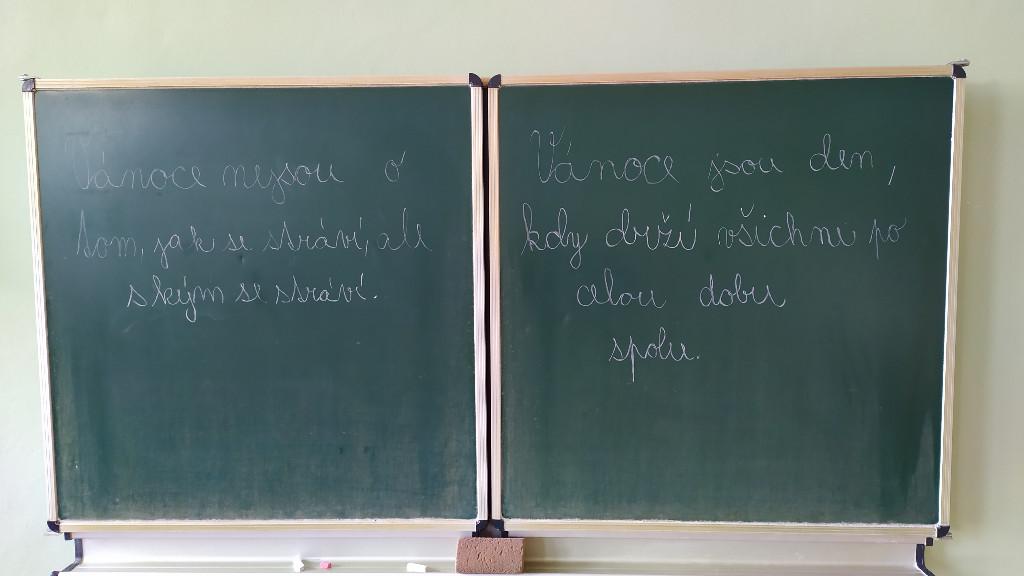 Vánoce nejsou o
tom, jak se stráví, ale
s kým se stráví.
Vánoce jsou den,
kdy drží všichni po
celou dobu
spolu.